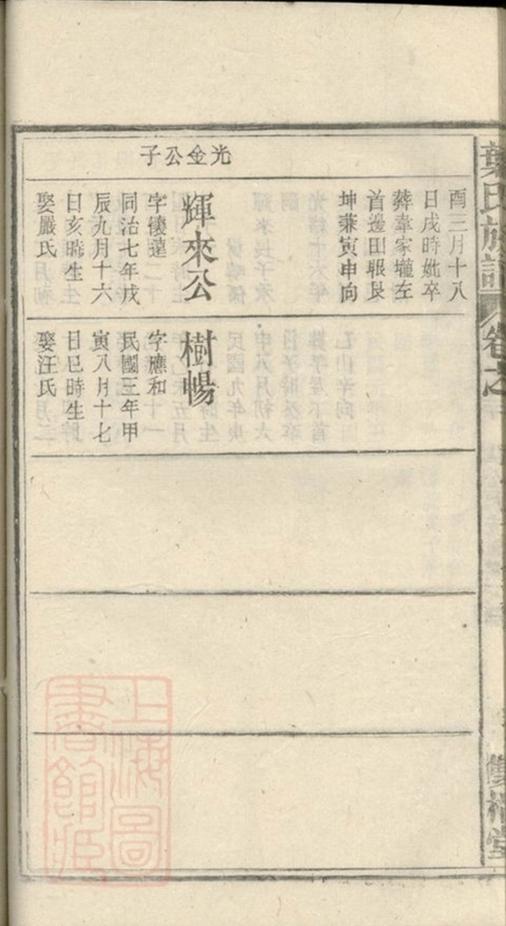 葉氏族譜
卷之
雙
堂
光金公子
酉三月十八
日戌時妣卒
葬韋家壠左
首邊田塅艮
坤兼寅申向
輝來公
字懷遠
同治七年戊
辰九月十六
日亥時生
娶嚴氏
樹暢
字應和
民國三年甲
寅八月十七
日巳時生
娶汪氏
上海圖
書館藏